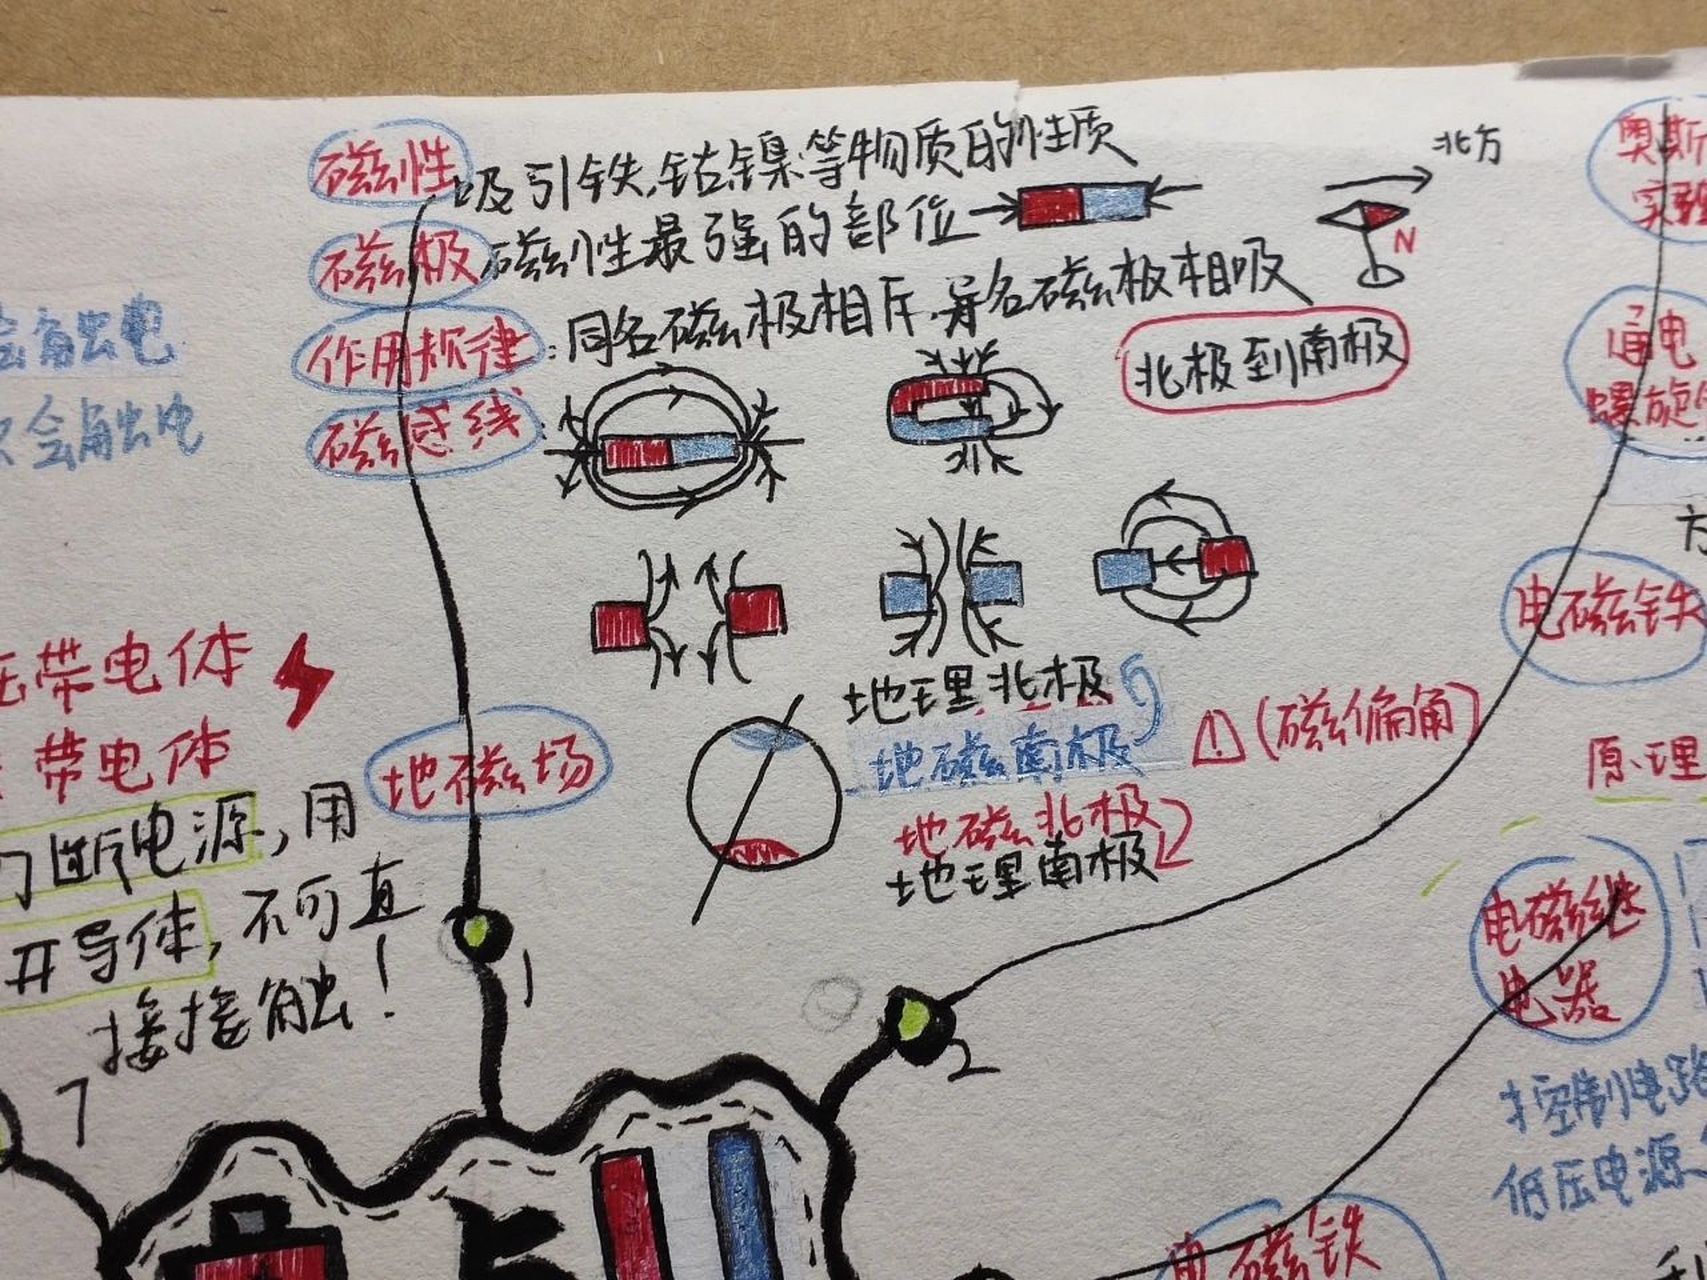 磁性 吸引铁,钴镍等物质的性质
北方
磁极 磁性最强的部位
N
作用规律:同名磁极相斥,异名磁极相吸
北极到南极
磁感线:
地磁场
地理北极
地磁南极
(磁偏角)
地磁北极
地理南极
1
2
7
会触电
会触电
压带电体
带电体
断电源,用
开导体,不可直
接接触!
奥斯
实验
通电
螺旋
方
电磁铁
原理
电磁继
电器
控制电路
低压电源
电磁铁